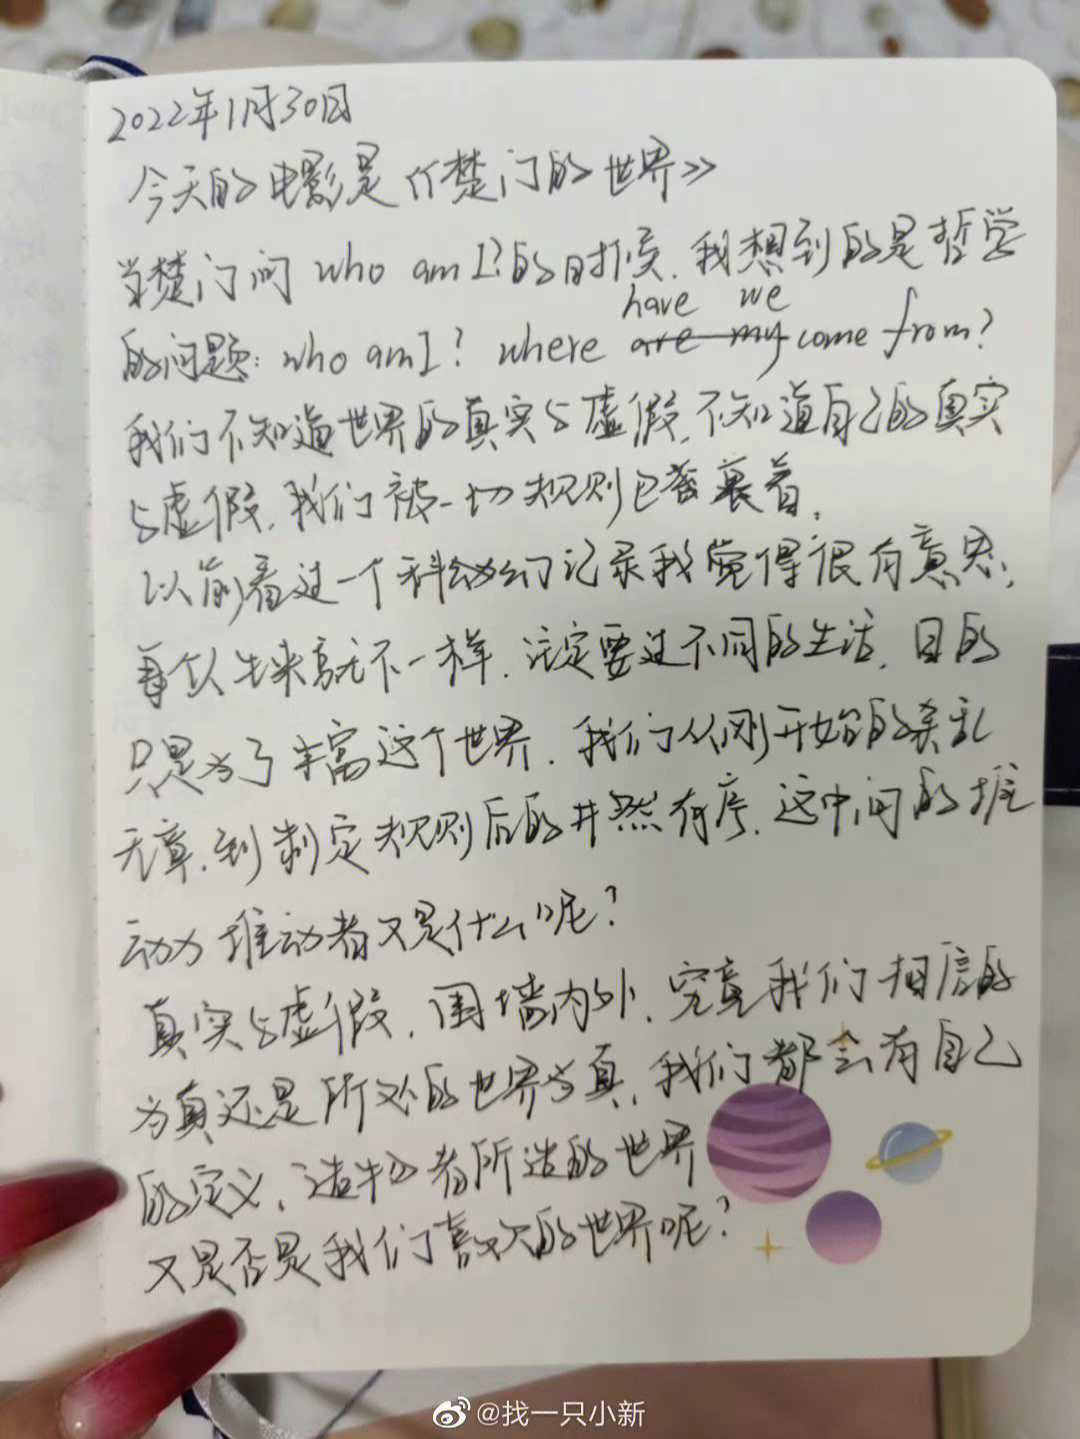 2022年1月30日
今天的电影是《楚门的世界》
当楚门问 who am I?的时候,我想到的是哲学
have we
的问题: who am I? where are my come from?
我们不知道世界的真实与虚假,不知道自己的真实
与虚假,我们被一切规则包裹着,
以前看过一个科幻记录我觉得很有意思,
每个人生来就不一样,注定要过不同的生活,目的
只是为了丰富这个世界,我们从刚开始的杂乱
无章,到制定规则后的井然有序,这中间的推
动力 推动者又是什么呢?
真实与虚假,围墙内外,究竟我们相信的
为真还是所处的世界为真,我们都会有自己
的定义,造物者所造的世界
又是否是我们喜欢的世界呢?
@找一只小新